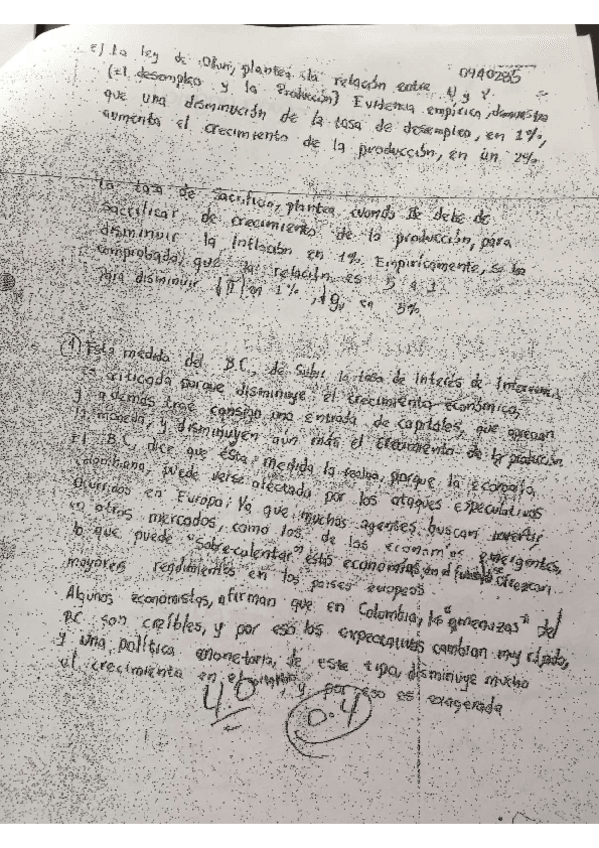 0940285
e) La ley de Okun, plantea la relación entre U y Y.
(El desempleo y la Producción) Evidencia empírica, demuestra
que una disminución de la tasa de desempleo, en 1%,
aumenta el crecimiento de la producción, en un 2%.
La tasa de sacrificio, plantea cuando se debe de
sacrificar de crecimiento de la producción, para
disminuir la inflación en 1%. Empíricamente, se ha
comprobado, que la relación es 5 a 1
Para disminuir en 1%, en 5%
1) Esta medida del B.C, de subir la tasa de interés de
es criticada porque disminuye el crecimiento económico,
y además trae consigo una entrada de capitales, que aprecian
la moneda, y disminuyen aun más el crecimiento de la producción
El B.C, dice que esta medida la realiza, porque la economía
colombiana, puede verse afectada por los ataques especulativos
ocurridos en Europa; Ya que, muchos agentes buscan invertir
en otros mercados, como los de las economías emergentes,
lo que puede "sobre-calentar" estas economías, en el futuro ofrezcan
mayores rendimientos en los países europeos
Algunos economistas, afirman que en Colombia, las "amenazas" del
B.C son creíbles, y por eso las expectativas cambian muy rápido,
y una política monetaria, de este tipo, disminuye mucho
el crecimiento en el y por eso es exagerada
4.0 0.4